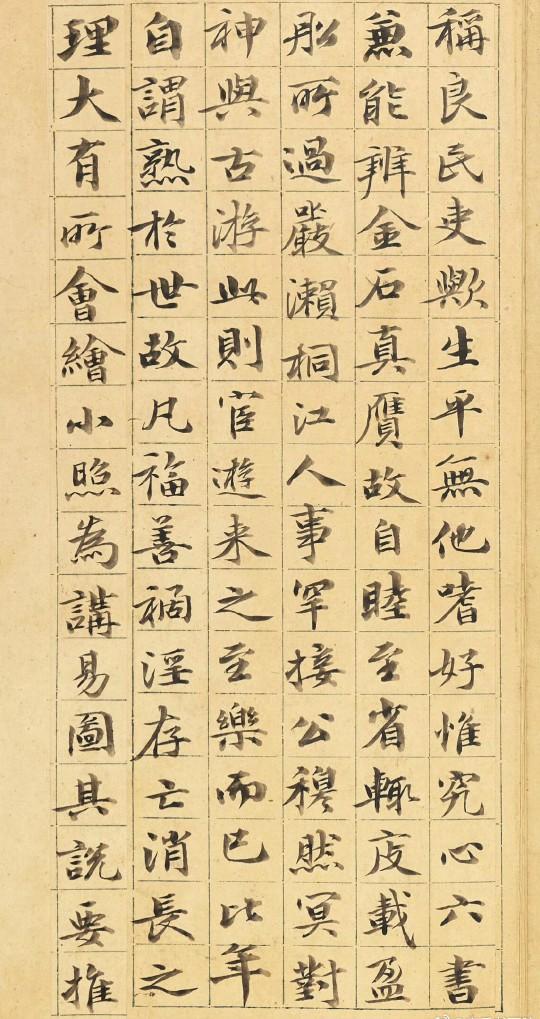 稱良民吏歟生平無他嗜好惟究心六書
兼能辨金石真贋故自睦至省輒庋載盈
舩所過嚴瀨桐江人事罕接公穆然冥對
神與古游此則宦遊来之至樂而已比年
自謂熟於世故凡福善禍淫存亡消長之
理大有所會繪小照為講易圖其説要推